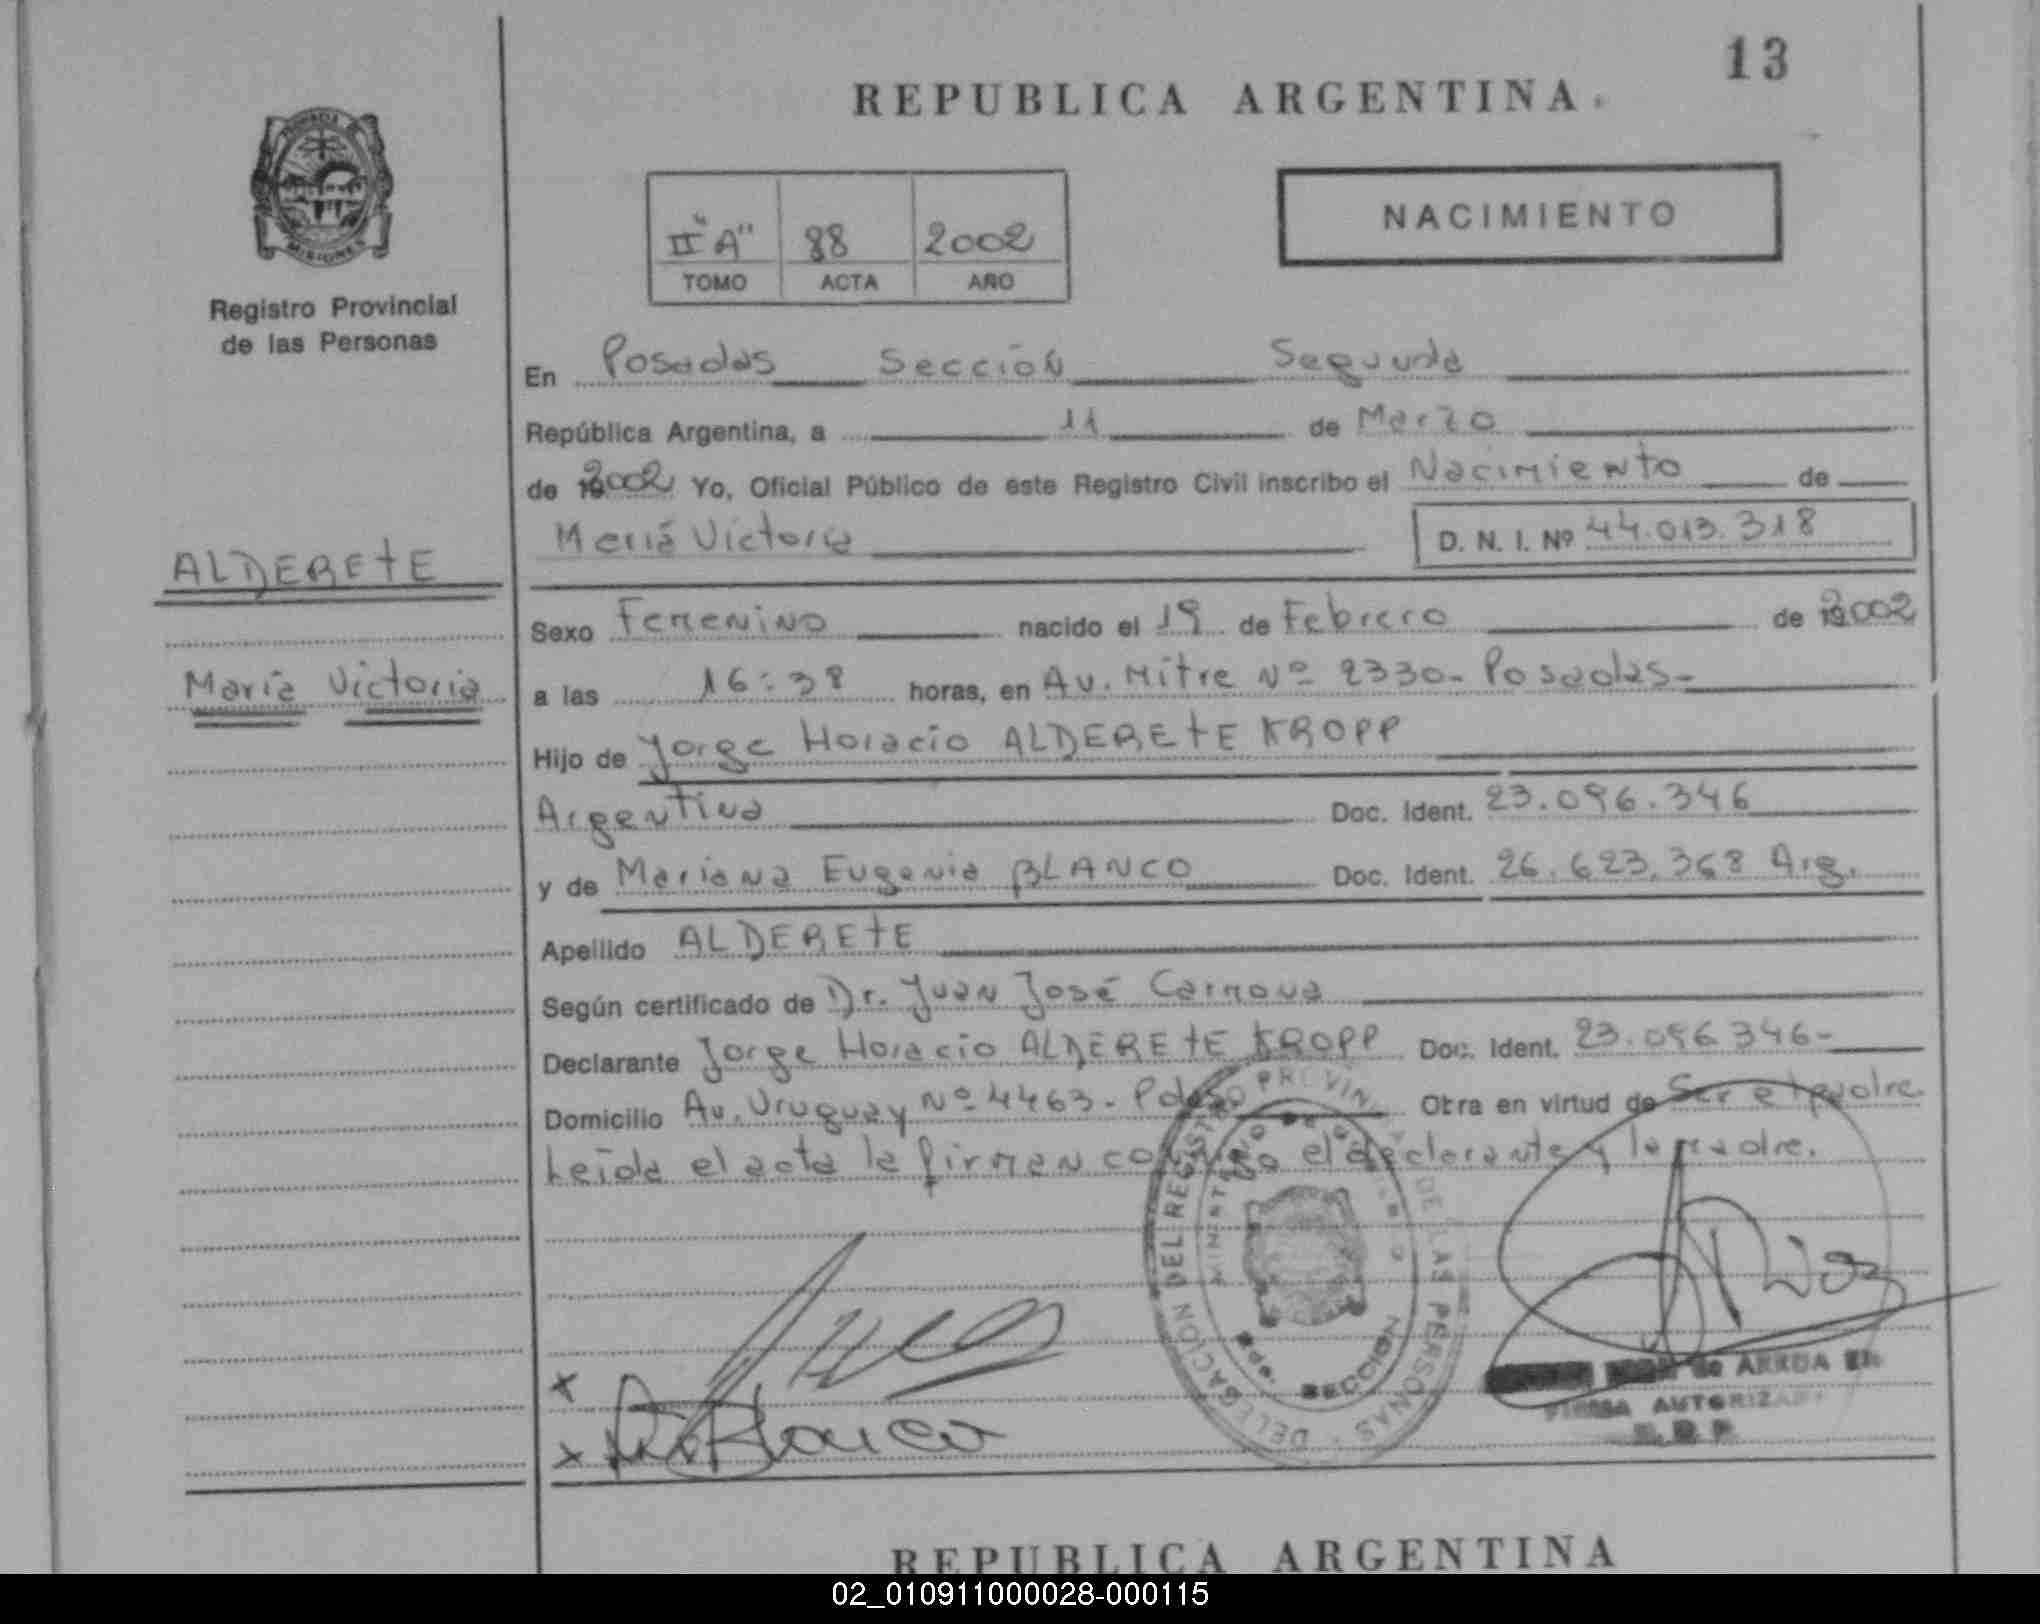 13
REPUBLICA ARGENTINA
PROVINCIA DE
MISIONES
Registro Provincial
de las Personas
II "A" 88 2002
TOMO ACTA AÑO
NACIMIENTO
En Posadas Sección Segunda
República Argentina, a 11 de Marzo
de 2002 Yo, Oficial Público de este Registro Civil inscribo el Nacimiento de
María Victoria D. N. I. Nº 44.013.318
ALDERETE
Sexo Femenino nacido el 19 de Febrero de 2002
María Victoria
a las 16:38 horas, en Av. Mitre Nº 2330- Posadas-
Hijo de Jorge Horacio ALDERETE KROPP
Argentina Doc. Ident. 23.096.346
y de Mariana Eugenia BLANCO Doc. Ident. 26.623.368 Arg.
Apellido ALDERETE
Según certificado de Dr. Juan José
Declarante Jorge Horacio ALDERETE KROPP Doc. Ident. 23.096.346-
Domicilio Av. Uruguay Nº 4463- Pdas Obra en virtud de Ser el padre.
Leída el acta la firman conmigo el declarante y la madre.
DELEGACION DEL REGISTRO PROVINCIAL DE LAS PERSONAS
MINISTERIO DE GOBIERNO
2da. SECCION
x
x Blanco
de ARRUA
FIRMA AUTORIZADA
R.P.P.
REPUBLICA ARGENTINA
02_010911000028-000115